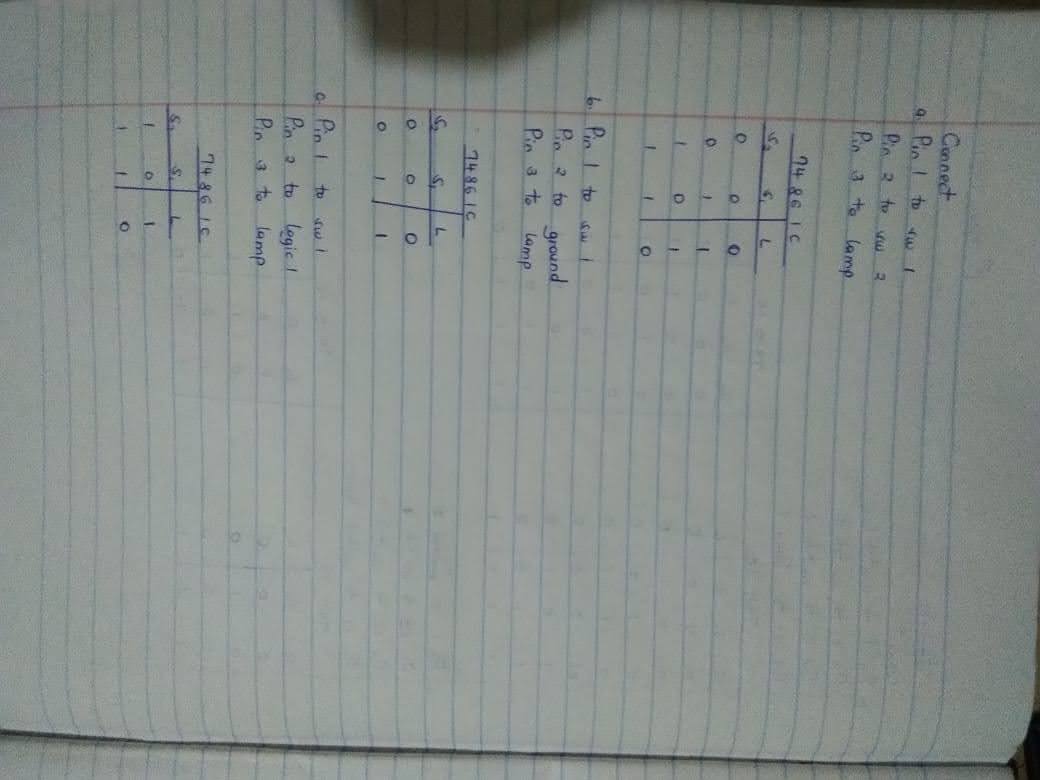 Connect
a. Pin 1 to sw 1
Pin 2 to sw 2
Pin 3 to lamp
7486 IC
S2 S1 L
0 0 0
0 1 1
1 0 1
1 1 0
b. Pin 1 to sw 1
Pin 2 to ground
Pin 3 to lamp
7486 IC
S2 S1 L
0 0 0
0 1 1
c. Pin 1 to sw 1
Pin 2 to logic 1
Pin 3 to lamp
7486 IC
S2 S1 L
1 0 1
1 1 0